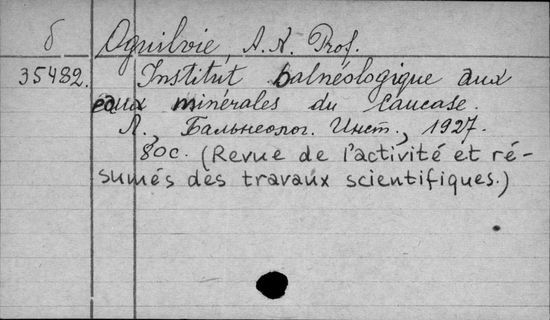 б Oguilvie, A. N. Prof.
35482. Institut balnéologique aux
eaux minérales du Caucase.
Л., Бальнеолог. Инст., 1927.
80с. (Revue de l'activité et ré-
sumés des travaux scientifiques.)